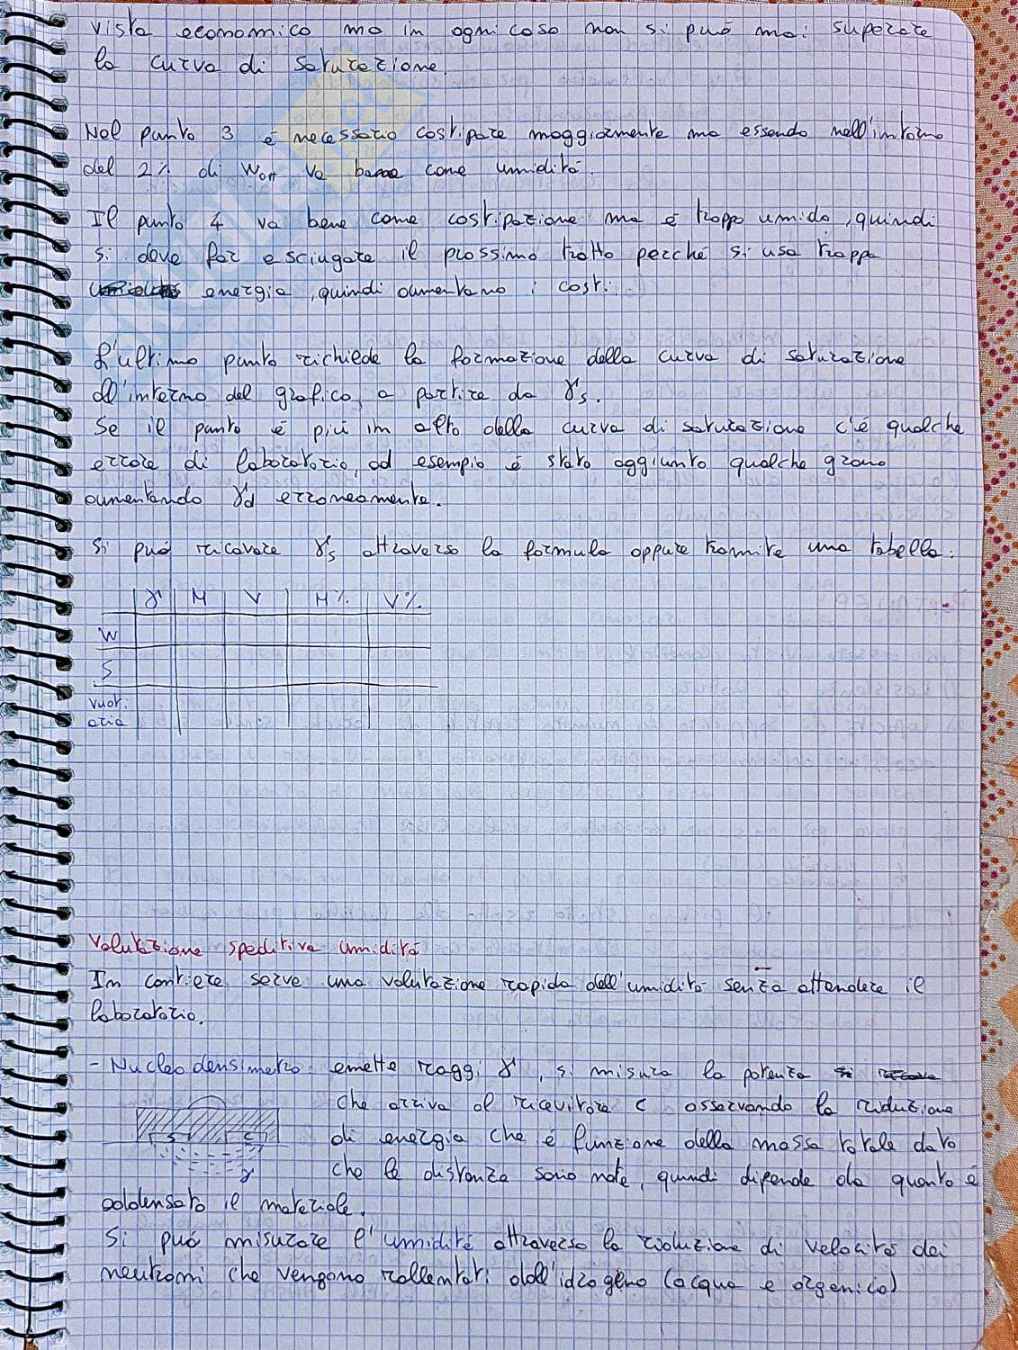 vista economico ma in ogni caso non si può mai superare
la curva di saturazione.
Nel punto 3 è necessario costipare maggiormente ma essendo nell'intorno
del 2% di Wott va bene come umidità.
Il punto 4 va bene come costipazione ma è troppo umido, quindi
si deve far asciugare il prossimo tratto perché si usa troppa
energia, quindi aumentano i costi.
L'ultimo punto richiede la formazione della curva di saturazione
all'interno del grafico, a partire da γs.
Se il punto è più in alto della curva di saturazione c'è qualche
errore di laboratorio, ad esempio è stato aggiunto qualche grano
aumentando γd erroneamente.
Si può ricavare γs attraverso la formula oppure tramite una tabella:
γ M V M% V%
W
S
vuoti
aria
Valutazione speditiva umidità
In cantiere serve una valutazione rapida dell'umidità senza attendere il
laboratorio.
- Nucleodensimetro: emette raggi γ, si misura la potenza
che arriva al ricevitore C osservando la riduzione
di energia che è funzione della massa totale dato
che le distanze sono note, quindi dipende da quanto è
addensato il materiale.
S C
γ
Si può misurare l'umidità attraverso la riduzione di velocità dei
neutroni che vengono rallentati dall'idrogeno (acqua e organico)